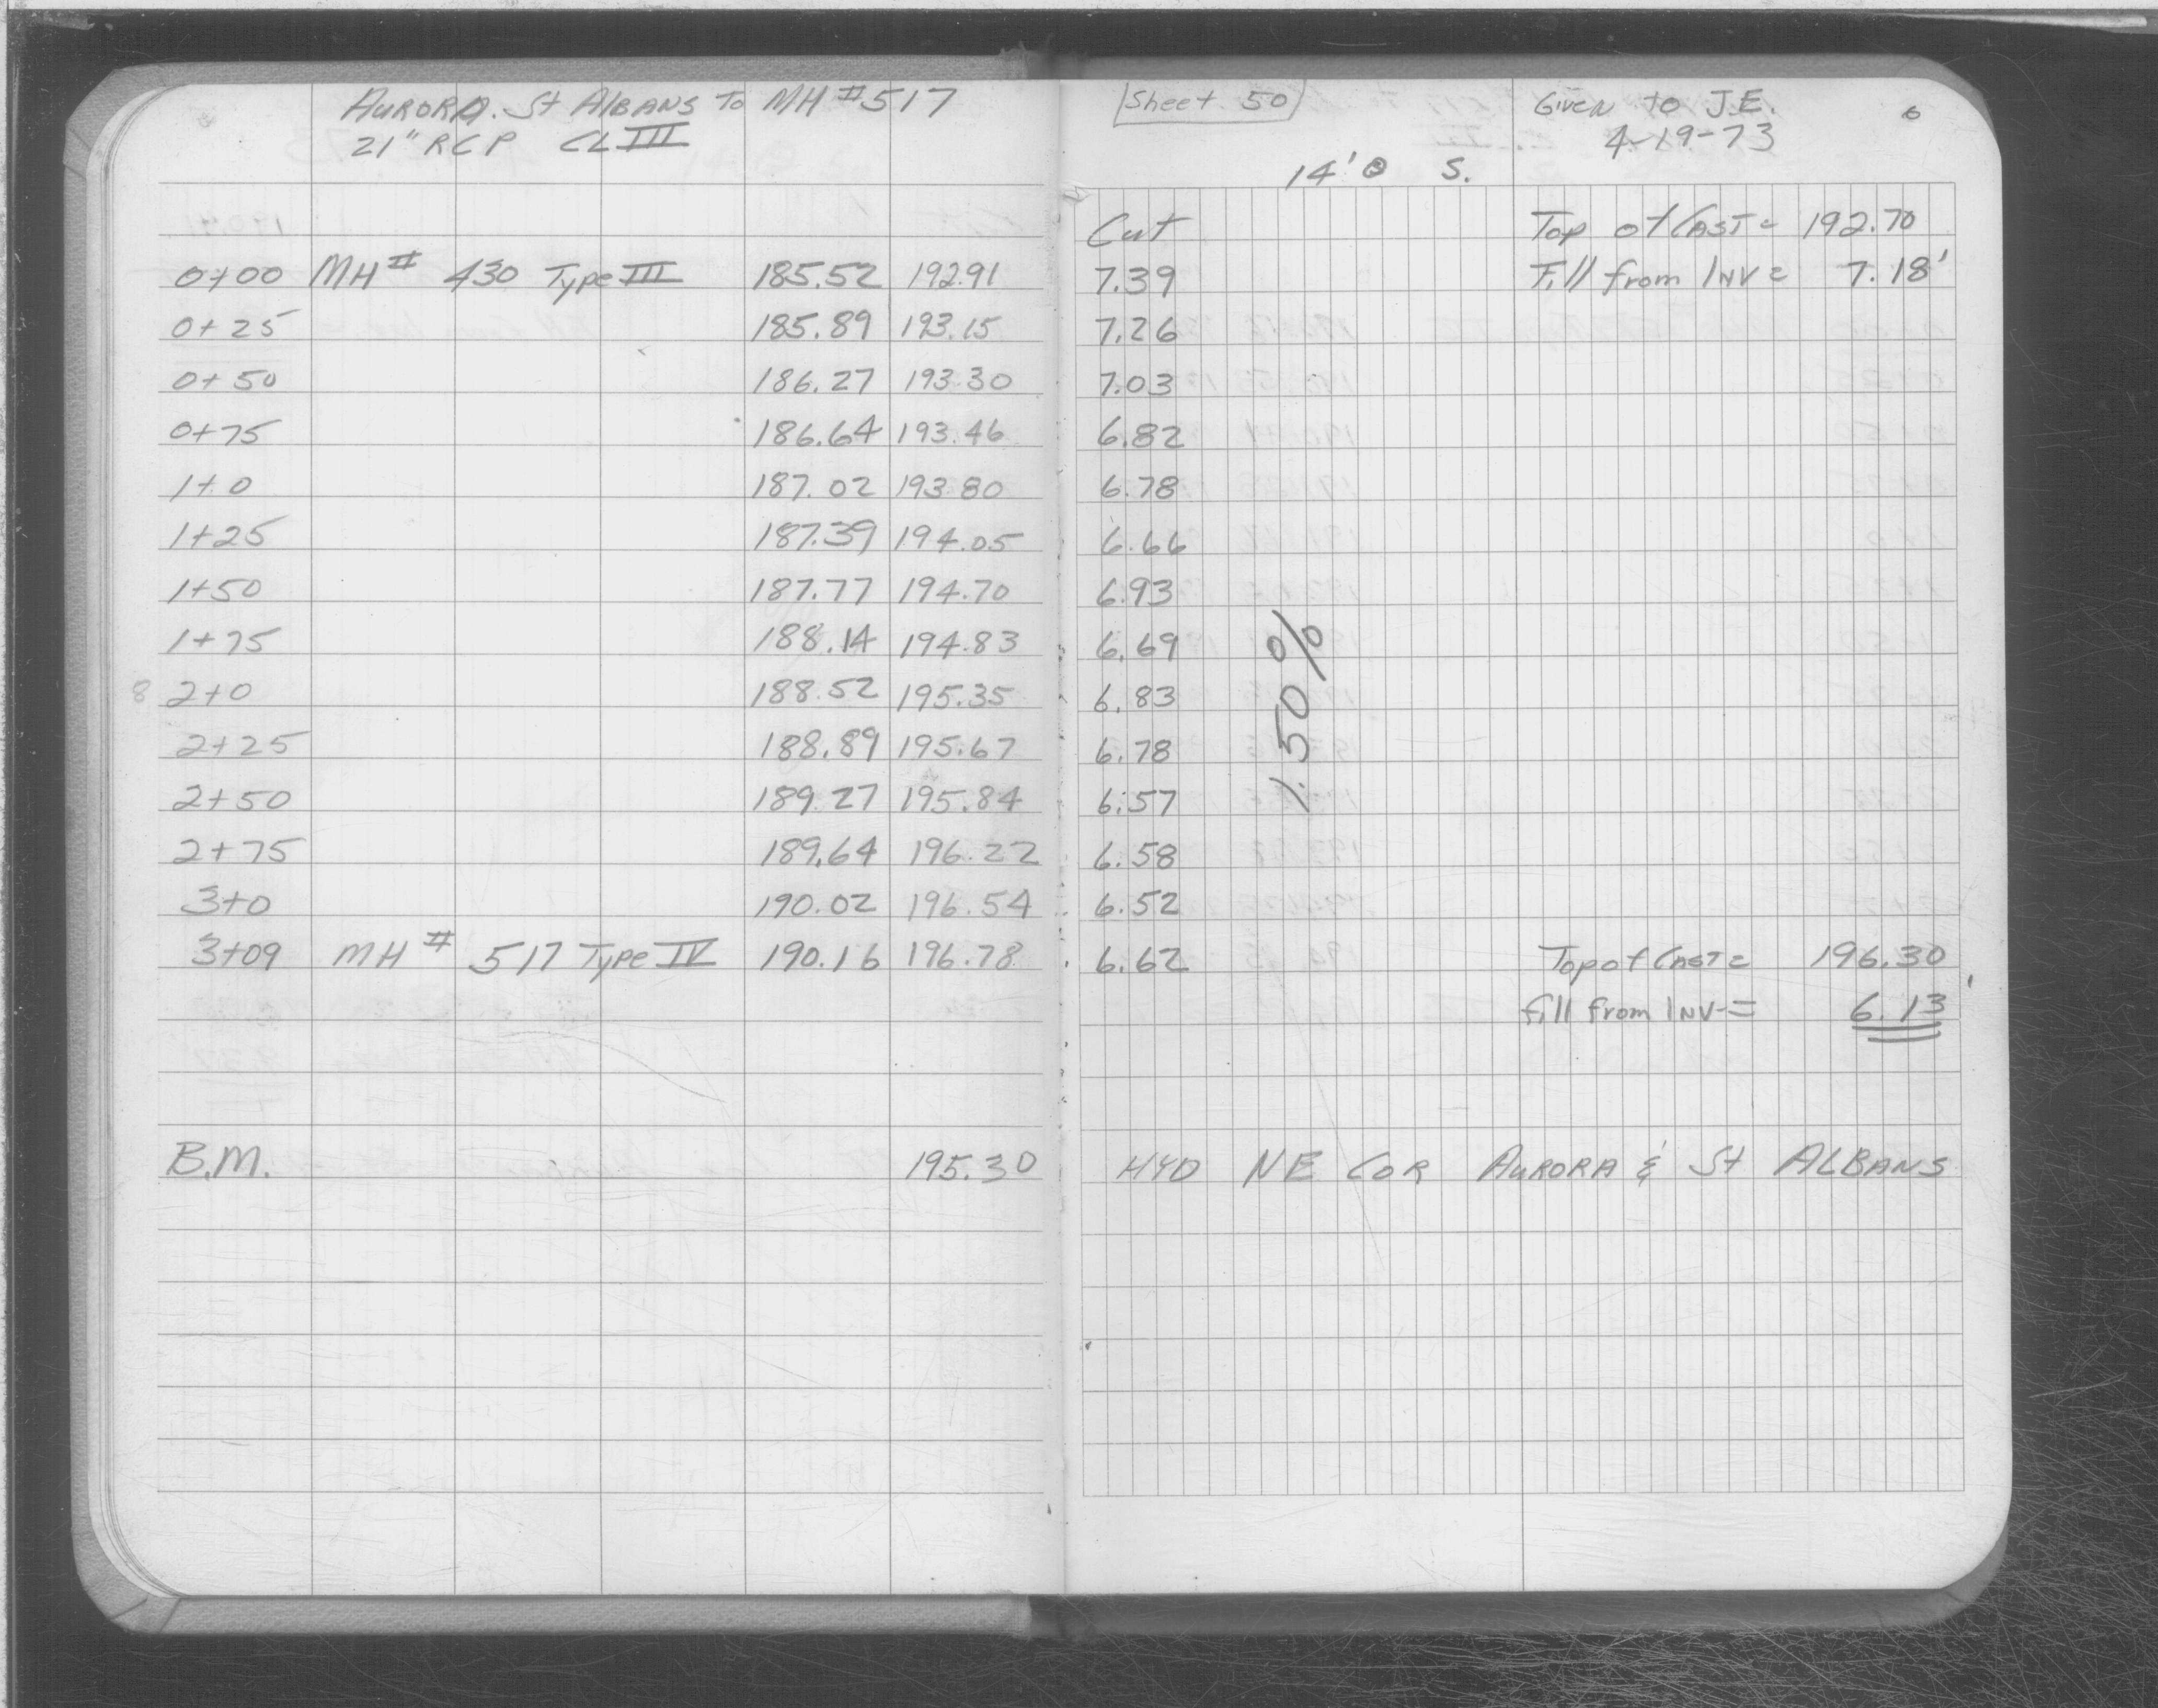 AURORA. St ALBANS To MH # 517
21" RCP CL III
Sheet 50
Given to J.E.
4-19-73
6
14' S.
Cut
Top of CAST = 192.70
0+00 MH # 430 Type III 185.52 192.91 7.39 Fill from INV = 7.18'
0+25 185.89 193.15 7.26
0+50 186.27 193.30 7.03
0+75 186.64 193.46 6.82
1+0 187.02 193.80 6.78
1+25 187.39 194.05 6.66
1+50 187.77 194.70 6.93
1+75 188.14 194.83 6.69
8 2+0 188.52 195.35 6.83
2+25 188.89 195.67 6.78
2+50 189.27 195.84 6.57
2+75 189.64 196.22 6.58
3+0 190.02 196.54 6.52
3+09 MH # 517 Type IV 190.16 196.78 6.62 Top of CAST = 196.30
fill from INV = 6.13'
1.50%
B.M. 195.30 HYD NE COR AURORA & St ALBANS